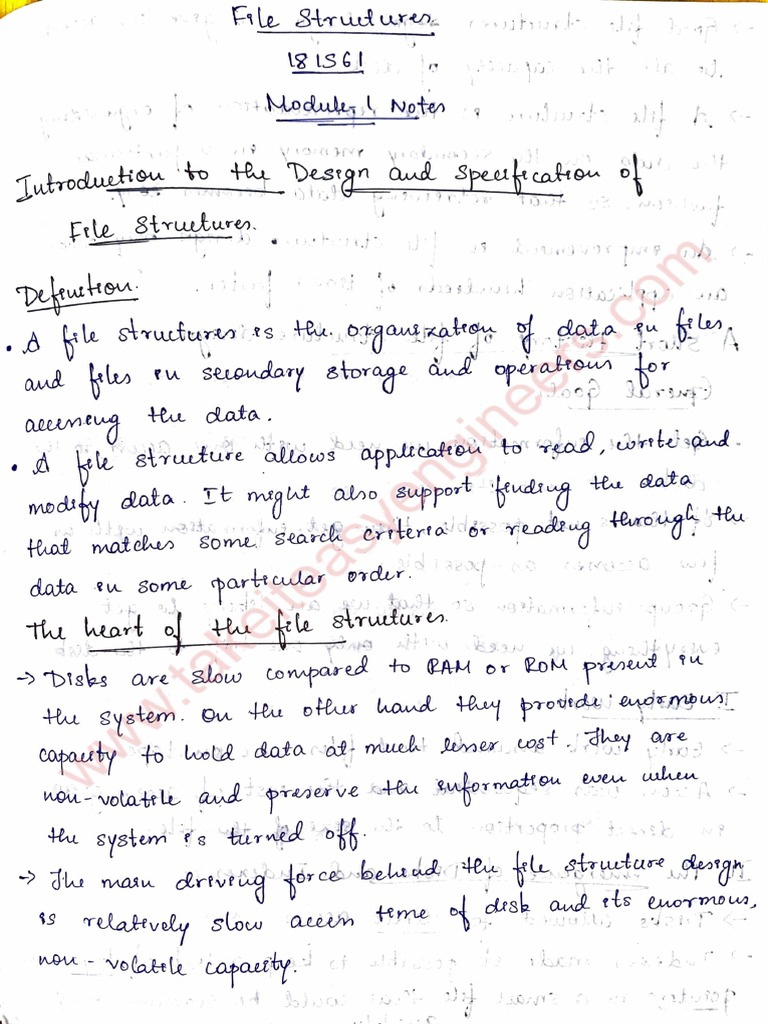 File Structures
18IS61
Module-1 Notes
Introduction to the Design and Specification of
File Structures.
Definition.
• A file structures is the organization of data in files
and files in secondary storage and operations for
accessing the data.
• A file structure allows application to read, write and
modify data. It might also support finding the data
that matches some search criteria or reading through the
data in some particular order.
The heart of the file structures.
→ Disks are slow compared to RAM or ROM present in
the system. On the other hand they provide enormous
capacity to hold data at much lesser cost. They are
non-volatile and preserve the information even when
the system is turned off.
→ The main driving force behind the file structure design
is relatively slow access time of disk and its enormous,
non-volatile capacity.
www.takeiteasyengineers.com